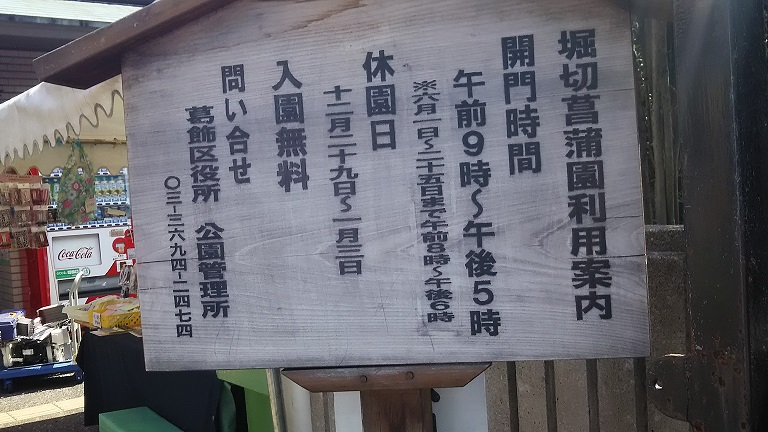 堀切菖蒲園利用案内
開門時間
午前9時～午後5時
※六月一日～二十五日まで午前8時～午後6時
休園日
十二月二十九日～一月三日
入園無料
問い合せ
葛飾区役所　公園管理所
〇三-三六九四-二四七四
Coca-Cola